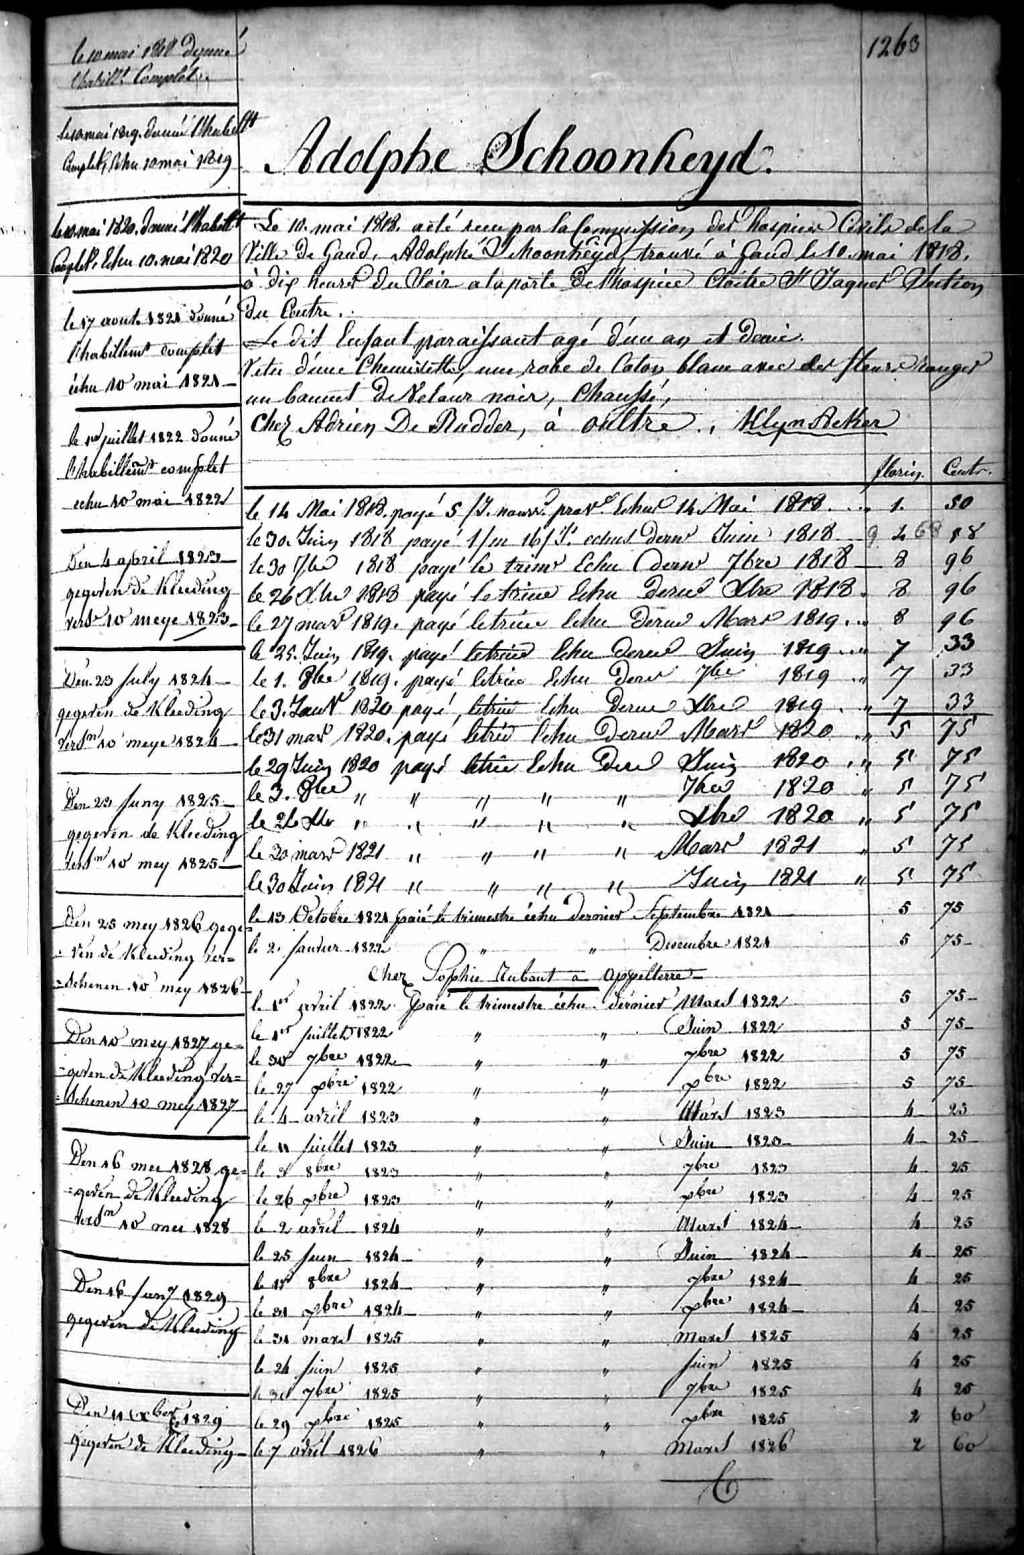 1263
le 10 mai 1818 donné
l'habillt Complet.
le 10 mai 1819. donné l'habillt
Complet, Echu 10 mai 1819
le 10 mai 1820. donné l'habillt
Complet. Echu 10. mai 1820
le 17 aout 1821 donné
l'habillemt complet
échu 10 mai 1821
le 1er juillet 1822 donné
l'habillemt complet
echu 10 mai 1822
Den 4 april 1823
gegeven de Kleeding
versn 10 meye 1823
Den 23 july 1824
gegeven de Kleeding
versn 10 meye 1824
Den 23 juny 1825
gegeven de Kleeding
versn 10 mey 1825
Den 25 mey 1826 gege-
-ven de Kleeding ver-
-schenen 10 mey 1826
Den 10 mey 1827 ge-
-geven de Kleeding ver-
-schenen 10 mey 1827
Den 16 mei 1828 ge-
-geven de Kleeding
versn 10 mei 1828
Den 16 juny 1829
gegeven de Kleeding
Den 11 1829
gegeven de Kleeding
Adolphe Schoonheyd.
Le 10. mai 1818. a été recu par la Commission des hospices Civils de la
Ville de Gand, Adolphe Schoonheyd, trouvé à Gand le 10. mai 1818.
à dix heures du Soir a la porte de l'hospice Cloitre St Jaques Section
du Centre.
Le dit Enfant paraissant agé d'un an et demie.
Vetu d'une Chemisette, une robe de Coton blanc avec des fleurs rouges
un bonnet de Velour noir, Chaussé,
Chez Adrien De Rudder, à oultre., Klyn Beker
florin. Cents.
le 14 Mai 1818 payé 5/ nourr. Echus 14 Mai 1818. 1. 50
le 30. Juin 1818 payé echus dernr Juin 1818 9 68
le 30 7bre 1818 payé le trimr Echu dernr 7bre 1818 8 96
le 26 Xbre 1818 payé le trime Echu derner Xbre 1818. 8 96
le 27 mars 1819. payé le trime Echu derner Mars 1819. 8 96
le 25. Juin 1819. payé le trime Echu derner Juin 1819 7 33
le 1. 8bre 1819. payé le trime Echu derner 7bre 1819 7 33
le 3. Janvr 1820 payé, le trime Echu derner Xbre 1819. 7 33
le 31 mars 1820. payé le trime Echu derner Mars 1820 5 75
le 29 Juin 1820 payé le trime Echu derner Juin 1820 5 75
le 3. 8bre " " " " " 7bre 1820 " 5 75
le 26 Xbre " " " " " Xbre 1820 " 5 75
le 30 mars 1821 " " " " Mars 1821 " 5 75
le 30 Juin 1821 " " " " Juin 1821 " 5 75
le 13 Octobre 1821 paié le trimestre échu dernier Septembre 1821 5 75
le 2. janvier 1822 " " Decembre 1821 5 75
Chez Sophie Aubant à appelterre
le 1er avril 1822 paié le trimestre échu dernier Mars 1822 5 75
le 1er juillet 1822 " " Juin 1822 5 75
le 30 7bre 1822 " " 7bre 1822 5 75
le 27 xbre 1822 " " xbre 1822 5 75
le 4 avril 1823 " " Mars 1823 4 25
le 11 juillet 1823 " " Juin 1823 4 25
le 3 8bre 1823 " " 7bre 1823 4 25
le 26 xbre 1823 " " xbre 1823 4 25
le 2 avril 1824 " " Mars 1824 4 25
le 25 juin 1824 " " Juin 1824 4 25
le 1er 8bre 1824 " " 7bre 1824 4 25
le 31 xbre 1824 " " xbre 1824 4 25
le 31 mars 1825 " " mars 1825 4 25
le 24 juin 1825 " " juin 1825 4 25
le 30 7bre 1825 " " 7bre 1825 4 25
le 29 xbre 1825 " " xbre 1825 2 60
le 7 avril 1826 " " mars 1826 2 60